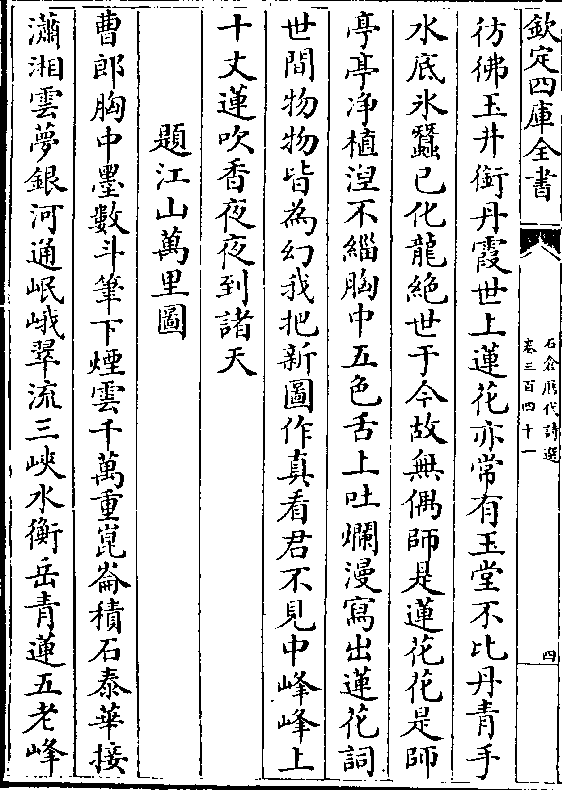 欽定四庫全書
石倉歷代詩選
卷三百四十一
四
彷彿玉井銜丹霞世上蓮花亦常有玉堂不比丹青手
水底氷蠶已化龍絶世于今故無偶師是蓮花花是師
亭亭净植涅不緇胸中五色舌上吐爛漫寫出蓮花詞
世間物物皆為幻我把新圖作真看君不見中峰峰上
十丈蓮吹香夜夜到諸天
題江山萬里圖
曹郎胸中墨數斗筆下煙雲千萬重崑崙積石泰華接
瀟湘雲夢銀河通岷峨翠流三峽水衡岳青蓮五老峰